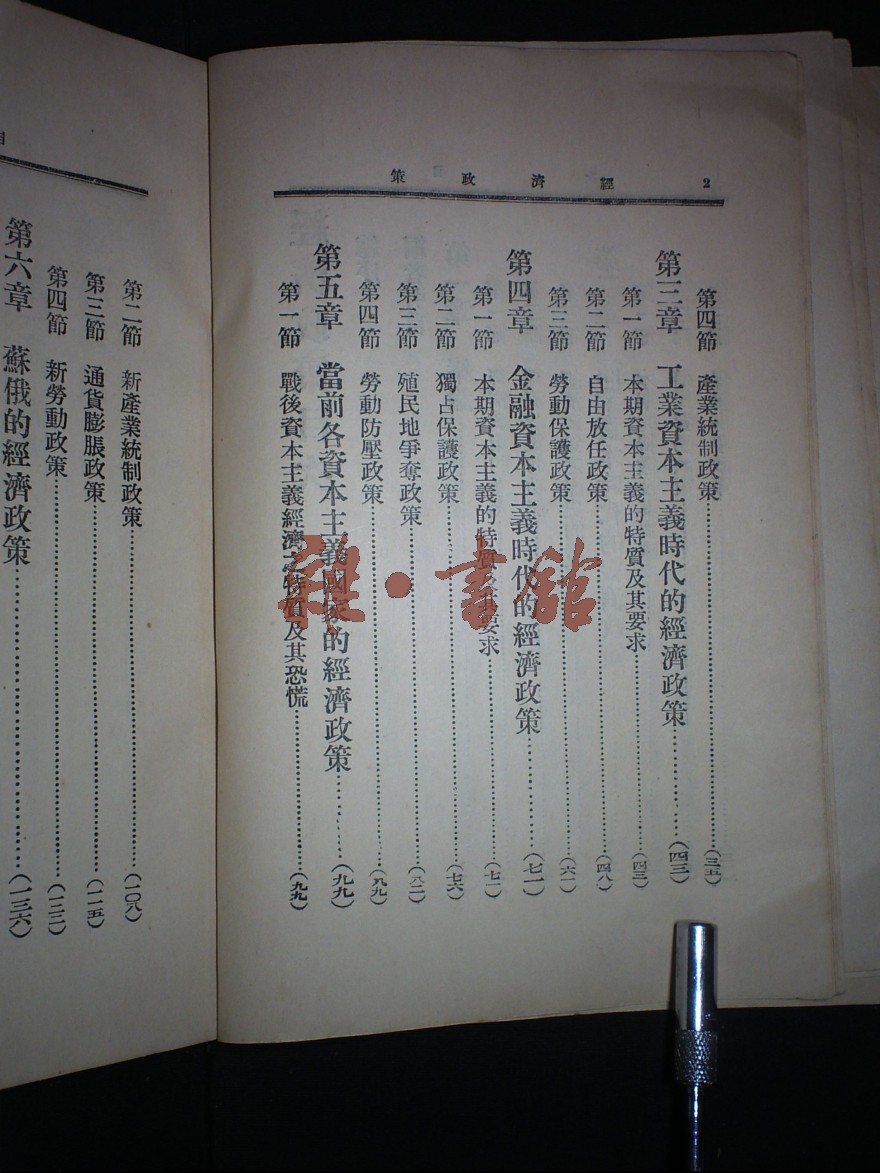 2　經濟政策
第四節　產業統制政策……(三五)
第三章　工業資本主義時代的經濟政策……(四三)
第一節　本期資本主義的特質及其要求……(四三)
第二節　自由放任政策……(四八)
第三節　勞動保護政策……(六一)
第四章　金融資本主義時代的經濟政策……(七一)
第一節　本期資本主義的特質及其要求……(七一)
第二節　獨占保護政策……(七六)
第三節　殖民地爭奪政策……(八二)
第四節　勞動防壓政策……(八九)
第五章　當前各資本主義國家的經濟政策……(九九)
第一節　戰後資本主義經濟之特質及其恐慌……(九九)
目
第二節　新產業統制政策……(一〇八)
第三節　通貨膨脹政策……(一一五)
第四節　新勞動政策……(一三二)
第六章　蘇俄的經濟政策……(一三六)
雜·書館